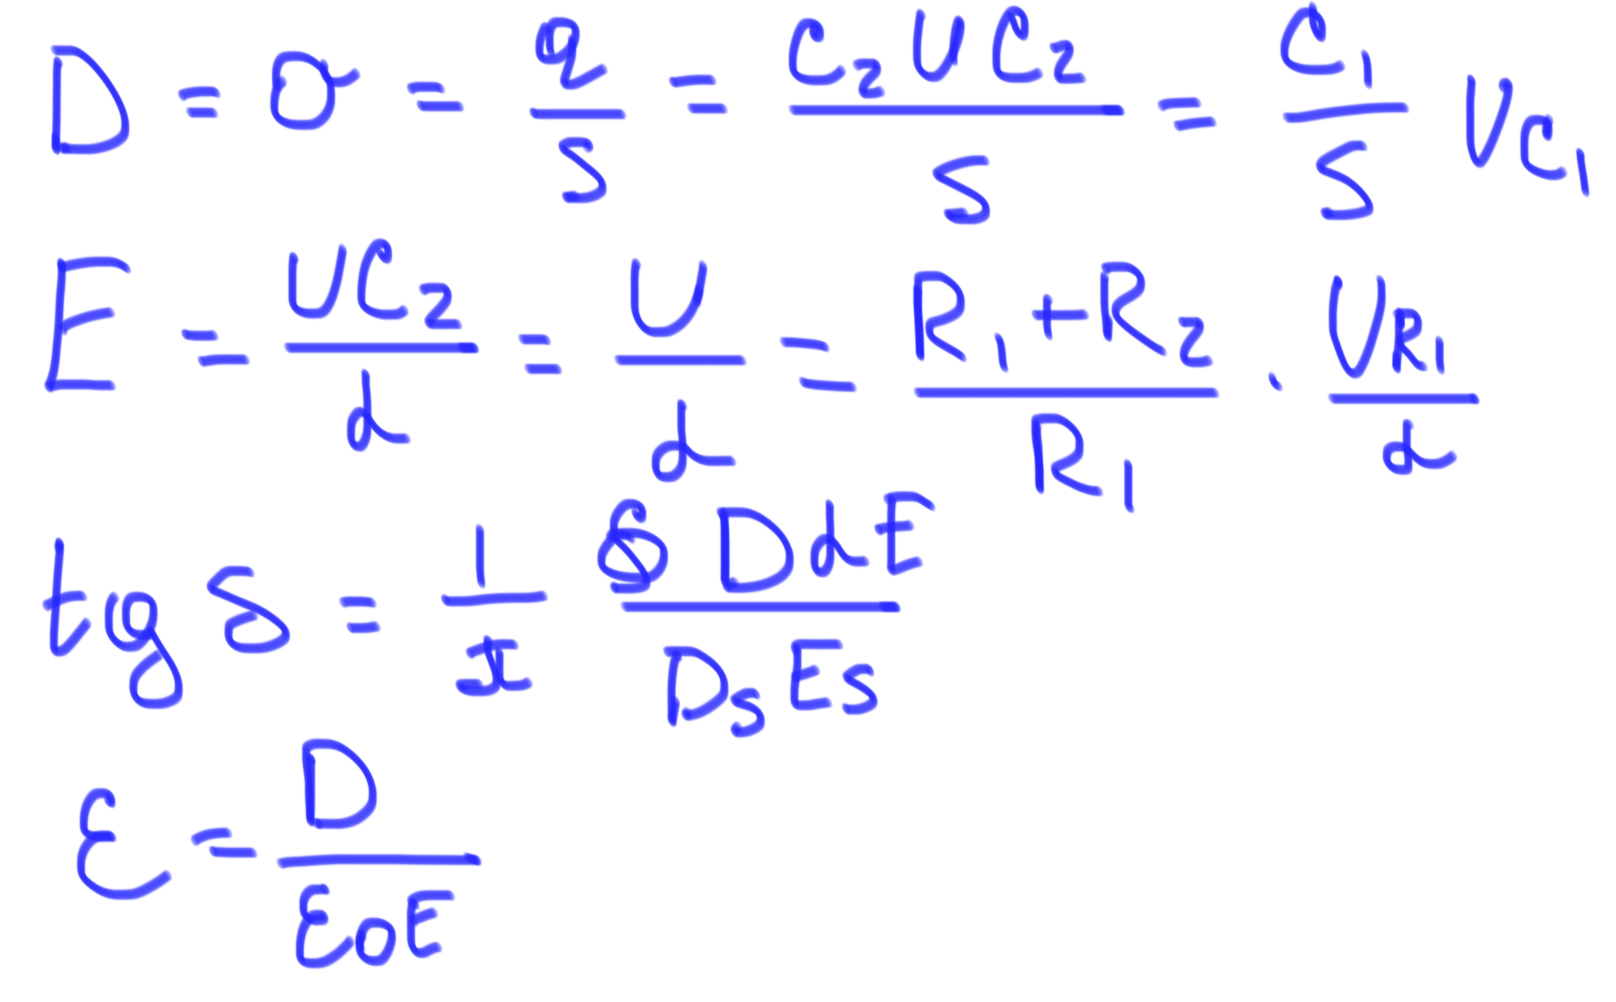 D = σ = q/s = C₂UC₂/S = C₁/S UC₁
E = UC₂/d = U/d = (R₁+R₂)/R₁ · UR₁/d
tg δ = 1/π ∮DdE/DsEs
ε = D/ε₀E